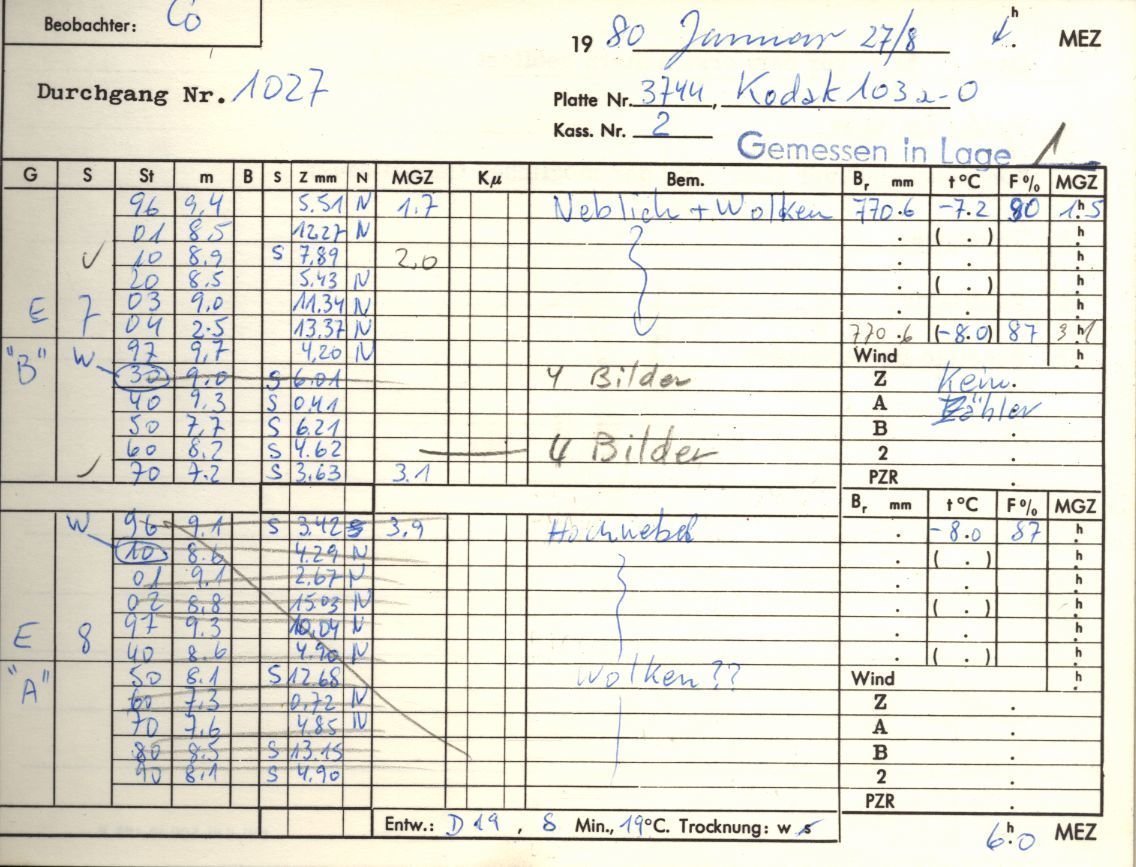 Beobachter: Cö
19 80 Januar 27/8 h MEZ
Durchgang Nr. 1027
Platte Nr. 3744, Kodak 103a-O
Kass. Nr. 2
Gemessen in Lage 1
G S St m B S Z mm N MGZ Kμ Bem. Br mm t °C F % MGZ
96 9.4 5.51 N 1.7 Neblich + Wolken 770.6 -7.2 90 1.h5
01 8.5 12.27 N . ( . ) .h
✓ 10 8.9 S 7,89 2,0 . . .h
20 8.5 5.43 N . ( . ) .h
E 7 03 9,0 11.34 N . . .h
04 2.5 13,37 N 770.6 (-8.0) 87 3.h1
"B" W 97 9,7 4,20 N Wind .h
30 9.0 S 6.01 4 Bilder Z Kein.
40 9.3 S 0.41 A Zähler
50 7,7 S 6.21 B .
60 8.2 S 4.62 4 Bilder 2 .
✓ 70 7.2 S 3,63 3.1 PZR .
Br mm t °C F % MGZ
W 96 9.1 S 3.42 3,9 Hochnebel . -8.0 87 .h
10 8.6 4.29 N . ( . ) .h
01 9.1 2,67 N . . .h
02 8,8 15.03 N . ( . ) .h
E 8 97 9.3 10,04 N . . .h
40 8.6 4.90 N . ( . ) .h
"A" 50 8.1 S 12.68 Wolken?? Wind .h
60 7.3 0,72 N Z .
70 7,6 4,85 N A .
80 8.5 S 13.15 B .
90 8.1 S 4,90 2 .
PZR .
Entw.: D 19 , 8 Min., 19°C. Trocknung: w s
6.h0 MEZ